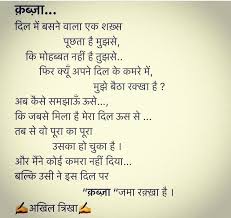 क़ब्ज़ा...
दिल में बसने वाला एक शख़्स
पूछता है मुझसे,
कि मोहब्बत नहीं है तुझसे..
फिर क्यूँ अपने दिल के कमरे में,
मुझे बैठा रक्खा है ?
अब कैसे समझाऊँ ऊसे...,
कि जबसे मिला है मेरा दिल ऊस से ...
तब से वो पूरा का पूरा
उसका हो चुका है ।
और मैंने कोई कमरा नहीं दिया...
बल्कि उसी ने इस दिल पर
"क़ब्ज़ा "जमा रक़्खा है ।
✍अखिल त्रिखा✍